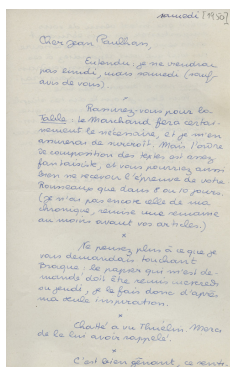 samedi [1950]
Cher Jean Paulhan,
Entendu : je ne viendrai
pas lundi, mais samedi (sauf
avis de vous).
*
Rassurez-vous pour la
Table : le Marchand fera certai-
nement le nécessaire, et je m'en
assurerai de surcroît. Mais l'ordre
de composition des textes est assez
fantaisiste, et vous pourriez aussi
bien ne recevoir l'épreuve de votre
Rousseaux que dans 8 ou 10 jours.
(Je n'ai pas encore celle de ma
chronique, remise une semaine
au moins avant vos articles.)
*
Ne pensez plus à ce que je
vous demandais touchant
Braque : le papier qui m'est de-
mandé doit être remis mercredi
ou jeudi, je le fais donc d'après
ma seule inspiration.
*
Chatté a vu Thuélin. Merci
de le lui avoir rappelé.
*
C'est bien gênant, ce